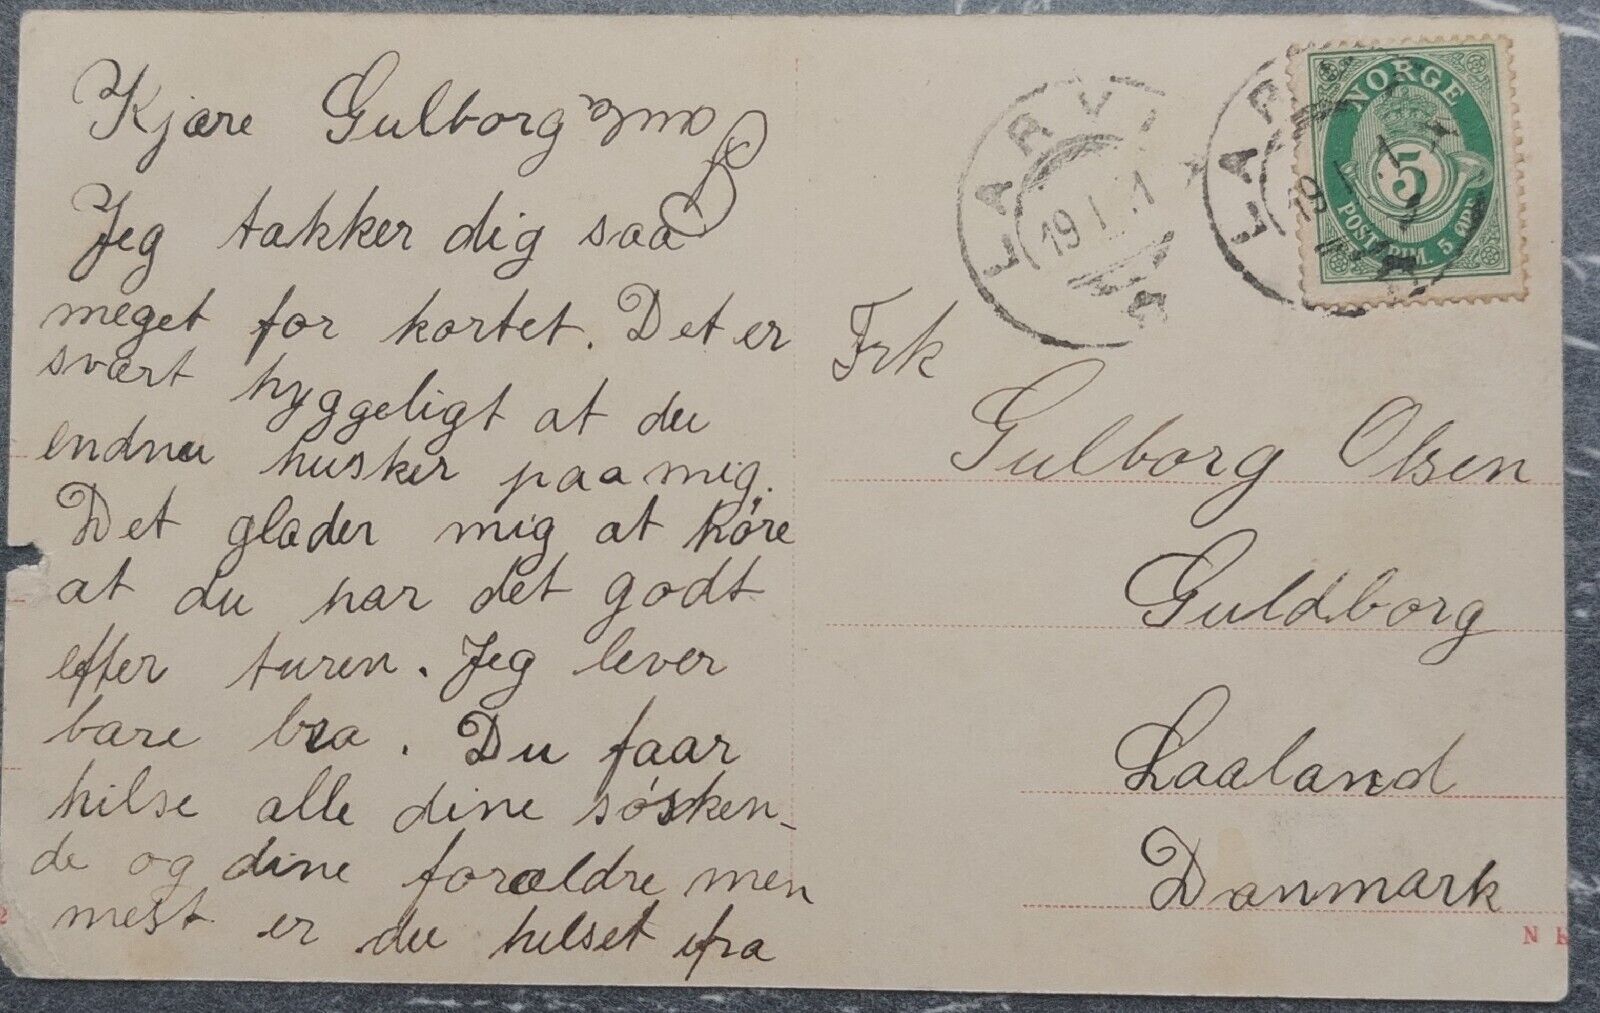 Kjære Gulborg
Jeg takker dig saa
meget for kortet. Det er
svært hyggeligt at du
endnu husker paa mig.
Det glæder mig at höre
at du har det godt
efter turen. Jeg lever
bare bra. Du faar
hilse alle dine sösken-
de og dine forældre men
mest er du hilset ifra
Frk
Gulborg Olsen
Guldborg
Laaland
Danmark
NORGE
5
POSTFRIM. 5 ØRE
LARV
19 I
LAR
19